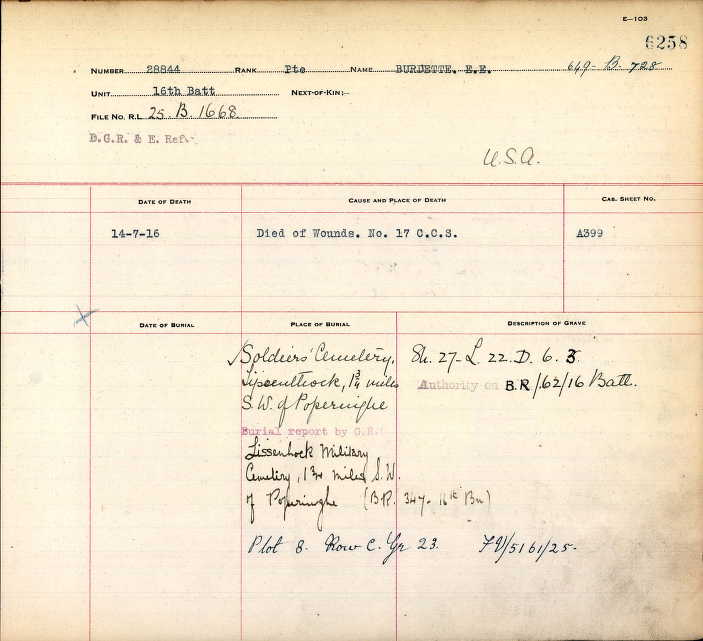 E—103
6258
NUMBER 28844 RANK Pte NAME BURDETTE. E.E. 649- B. 728
UNIT 16th Batt NEXT-OF-KIN:—
FILE NO. R.L. 25. B. 1668.
D.G.R. & E. Ref.
U.S.A.
DATE OF DEATH CAUSE AND PLACE OF DEATH CAS. SHEET NO.
14-7-16 Died of Wounds. No. 17 C.C.S. A399
DATE OF BURIAL PLACE OF BURIAL DESCRIPTION OF GRAVE
Soldiers' Cemetery, Sh. 27- L. 22. D. 6. 3
Lijssenthoek, 1¾ miles Authority on B.R/62/16 Batt.
S.W. of Poperinghe
Burial report by G.R.
Lissenhock Military
Cemetery, 1¾ miles S.W.
of Poperinghe (B.R. 347- 16th Bn)
Plot 8. Row C. Gr 23. FV/5161/25-